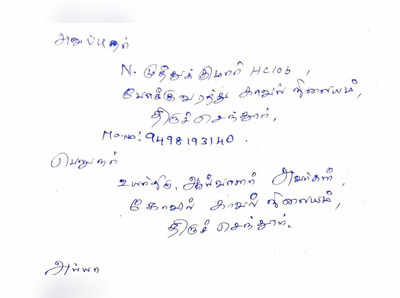 அனுப்புநர்
N. முத்துக்குமார் HC106,
போக்குவரத்து காவல் நிலையம்,
திருச்செந்தூர்.
9498193140.
பெறுநர்
உயர்திரு. ஆய்வாளர் அவர்கள்,
கோவில் காவல் நிலையம்,
திருச்செந்தூர்.
அய்யா